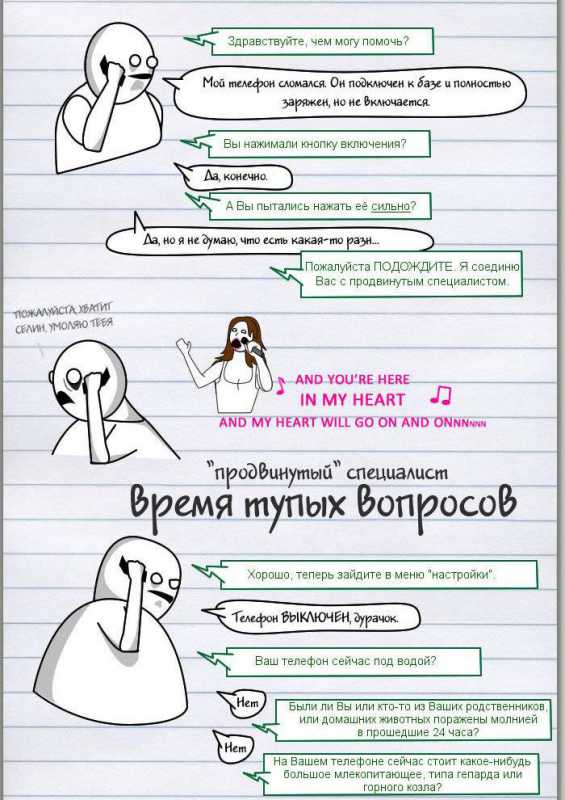 Здравствуйте, чем могу помочь?
Мой телефон сломался. Он подключен к базе и полностью
заряжен, но не включается.
Вы нажимали кнопку включения?
Да, конечно.
А Вы пытались нажать её сильно?
Да, но я не думаю, что есть какая-то разн...
Пожалуйста ПОДОЖДИТЕ. Я соединю
Вас с продвинутым специалистом.
ПОЖАЛУЙСТА, ХВАТИТ
СЕЛИН, УМОЛЯЮ ТЕБЯ
AND YOU'RE HERE
IN MY HEART
AND MY HEART WILL GO ON AND ONNNNNN
"продвинутый" специалист
время тупых вопросов
Хорошо, теперь зайдите в меню "настройки".
Телефон ВЫКЛЮЧЕН, дурачок.
Ваш телефон сейчас под водой?
Нет
Были ли Вы или кто-то из Ваших родственников,
или домашних животных поражены молнией
в прошедшие 24 часа?
Нет
На Вашем телефоне сейчас стоит какое-нибудь
большое млекопитающее, типа гепарда или
горного козла?